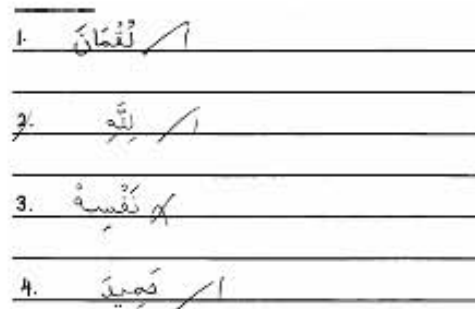 1. لُقْمَانَ
2. لِلَّهِ
3. نَفْسِهْ
4. حَمِيدَ